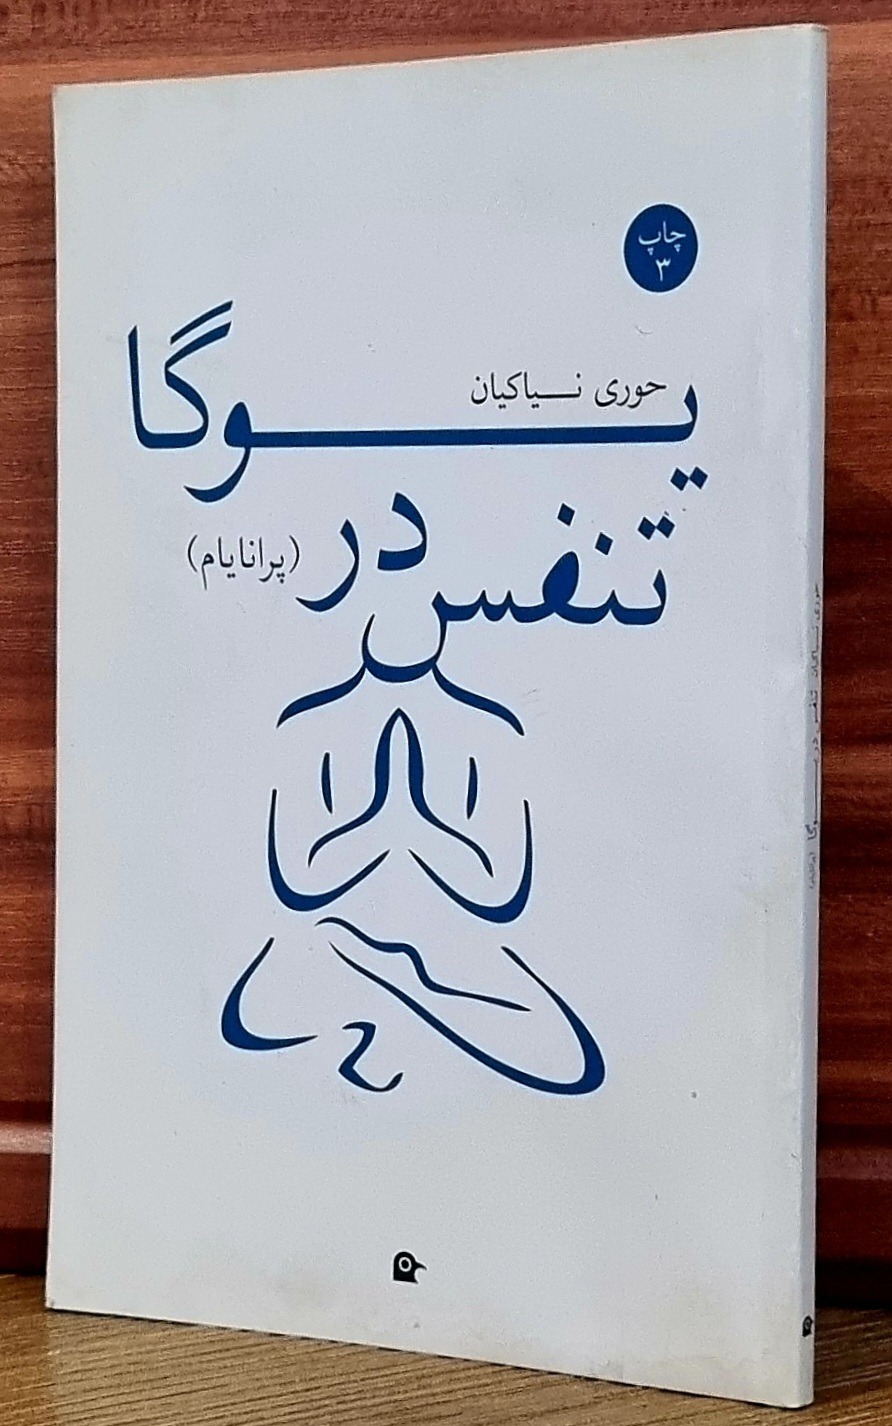 چاپ
۳
حوری نسیاکیان
یوگا
تنفس در
(پرانایام)
حوری نسیاکیان تنفس در یوگا (پرانایام)